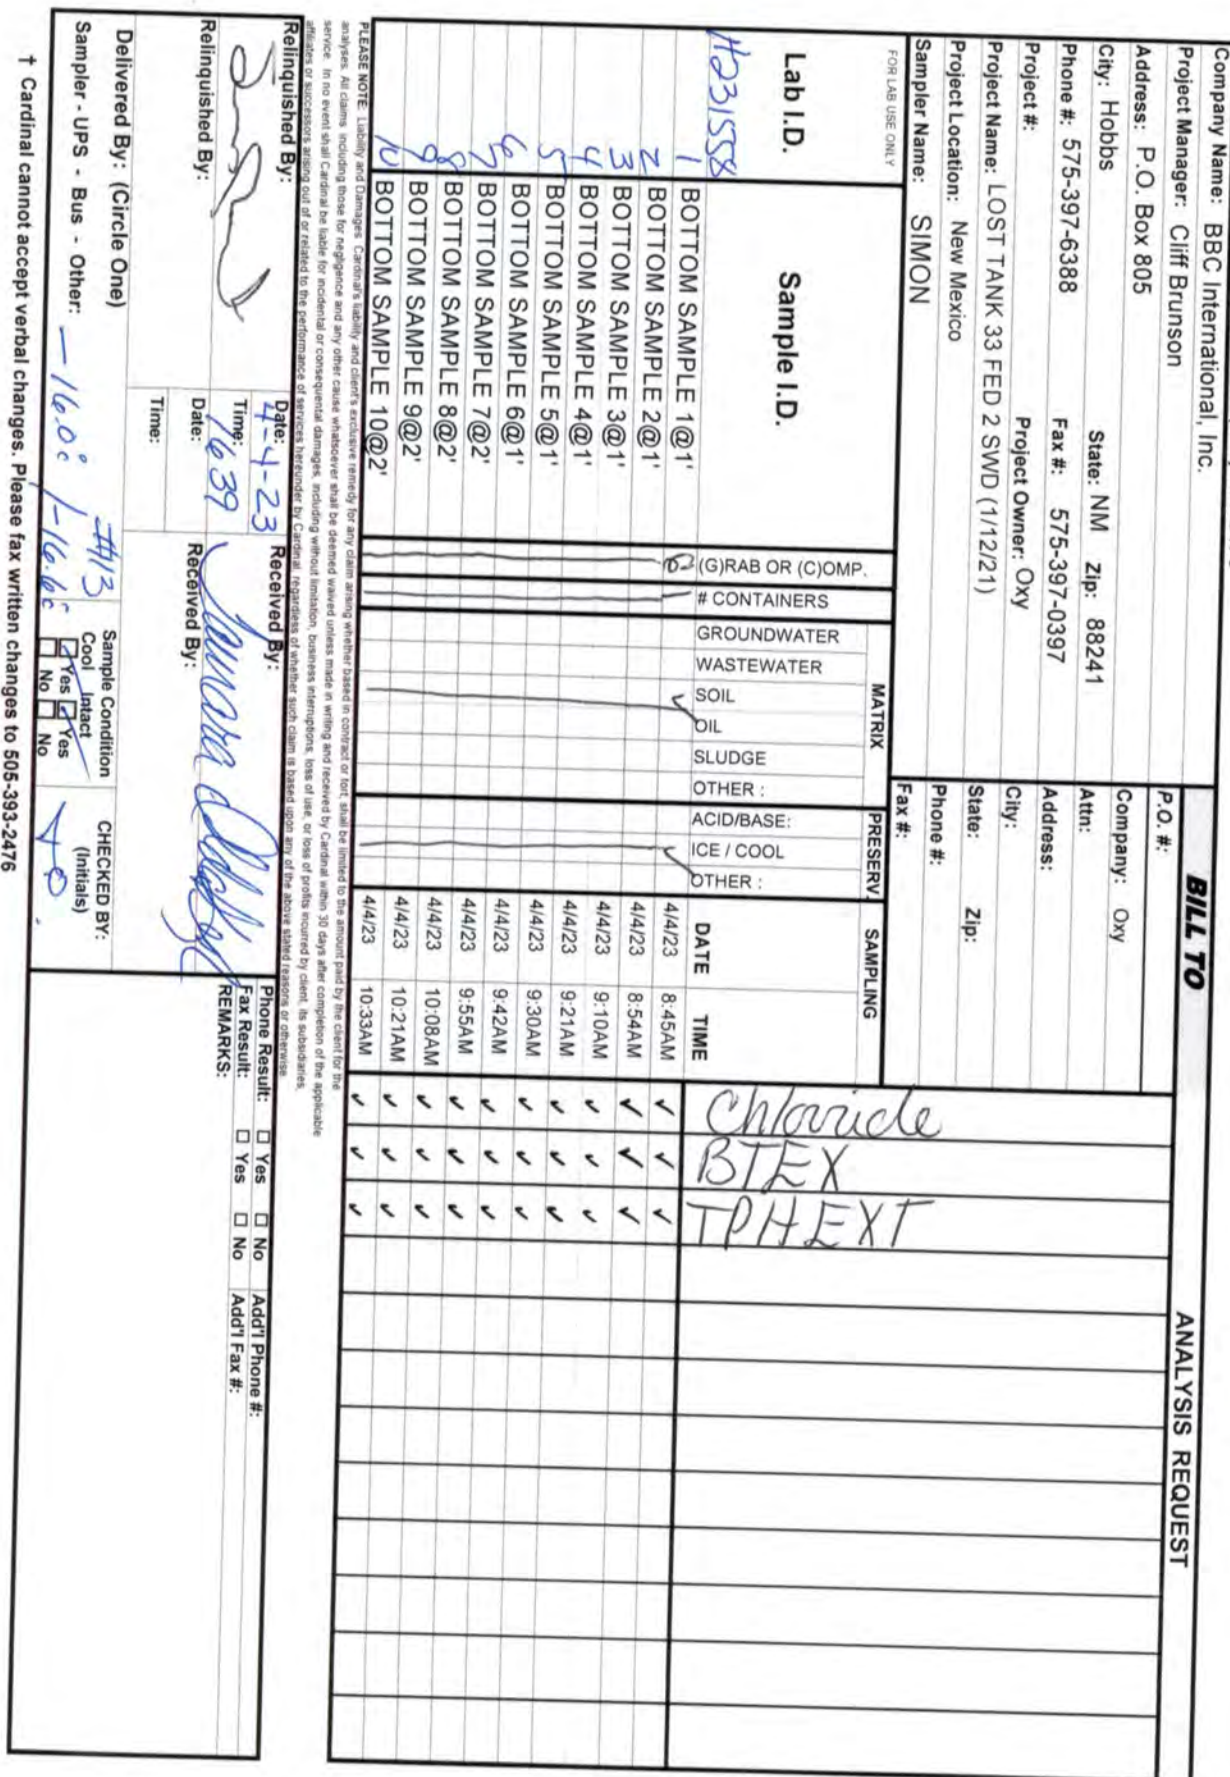 Company Name: BBC International, Inc.
Project Manager: Cliff Brunson
Address: P.O. Box 805
City: Hobbs State: NM Zip: 88241
Phone #: 575-397-6388 Fax #: 575-397-0397
Project #: Project Owner: Oxy
Project Name: LOST TANK 33 FED 2 SWD (1/12/21)
Project Location: New Mexico
Sampler Name: SIMON
BILL TO
P.O. #:
Company: Oxy
Attn:
Address:
City:
State: Zip:
Phone #:
Fax #:
ANALYSIS REQUEST
Chloride
BTEX
TPH EXT
FOR LAB USE ONLY
Lab I.D.
Sample I.D.
(G)RAB OR (C)OMP.
# CONTAINERS
MATRIX
GROUNDWATER
WASTEWATER
SOIL
OIL
SLUDGE
OTHER :
PRESERV.
ACID/BASE:
ICE / COOL
OTHER :
SAMPLING
DATE TIME
H231558
1 BOTTOM SAMPLE 1@1' 4/4/23 8:45AM ✓ ✓ ✓
2 BOTTOM SAMPLE 2@1' 4/4/23 8:54AM ✓ ✓ ✓
3 BOTTOM SAMPLE 3@1' 4/4/23 9:10AM ✓ ✓ ✓
4 BOTTOM SAMPLE 4@1' 4/4/23 9:21AM ✓ ✓ ✓
5 BOTTOM SAMPLE 5@1' 4/4/23 9:30AM ✓ ✓ ✓
6 BOTTOM SAMPLE 6@1' 4/4/23 9:42AM ✓ ✓ ✓
7 BOTTOM SAMPLE 7@2' 4/4/23 9:55AM ✓ ✓ ✓
8 BOTTOM SAMPLE 8@2' 4/4/23 10:08AM ✓ ✓ ✓
9 BOTTOM SAMPLE 9@2' 4/4/23 10:21AM ✓ ✓ ✓
10 BOTTOM SAMPLE 10@2' 4/4/23 10:33AM ✓ ✓ ✓
PLEASE NOTE: Liability and Damages. Cardinal's liability and client's exclusive remedy for any claim arising whether based in contract or tort, shall be limited to the amount paid by the client for the
analyses. All claims including those for negligence and any other cause whatsoever shall be deemed waived unless made in writing and received by Cardinal within 30 days after completion of the applicable
service. In no event shall Cardinal be liable for incidental or consequental damages, including without limitation, business interruptions, loss of use, or loss of profits incurred by client, its subsidiaries,
affiliates or successors arising out of or related to the performance of services hereunder by Cardinal, regardless of whether such claim is based upon any of the above stated reasons or otherwise.
Relinquished By:
Date: 4-4-23
Time: 1639
Received By:
Relinquished By:
Date:
Time:
Received By:
Phone Result: ☐ Yes ☐ No Add'l Phone #:
Fax Result: ☐ Yes ☐ No Add'l Fax #:
REMARKS:
Delivered By: (Circle One)
Sampler - UPS - Bus - Other: -16.0°c / -16.6°c #113
Sample Condition
Cool Intact
☐ Yes ☐ Yes
☐ No ☐ No
CHECKED BY:
(Initials)
† Cardinal cannot accept verbal changes. Please fax written changes to 505-393-2476